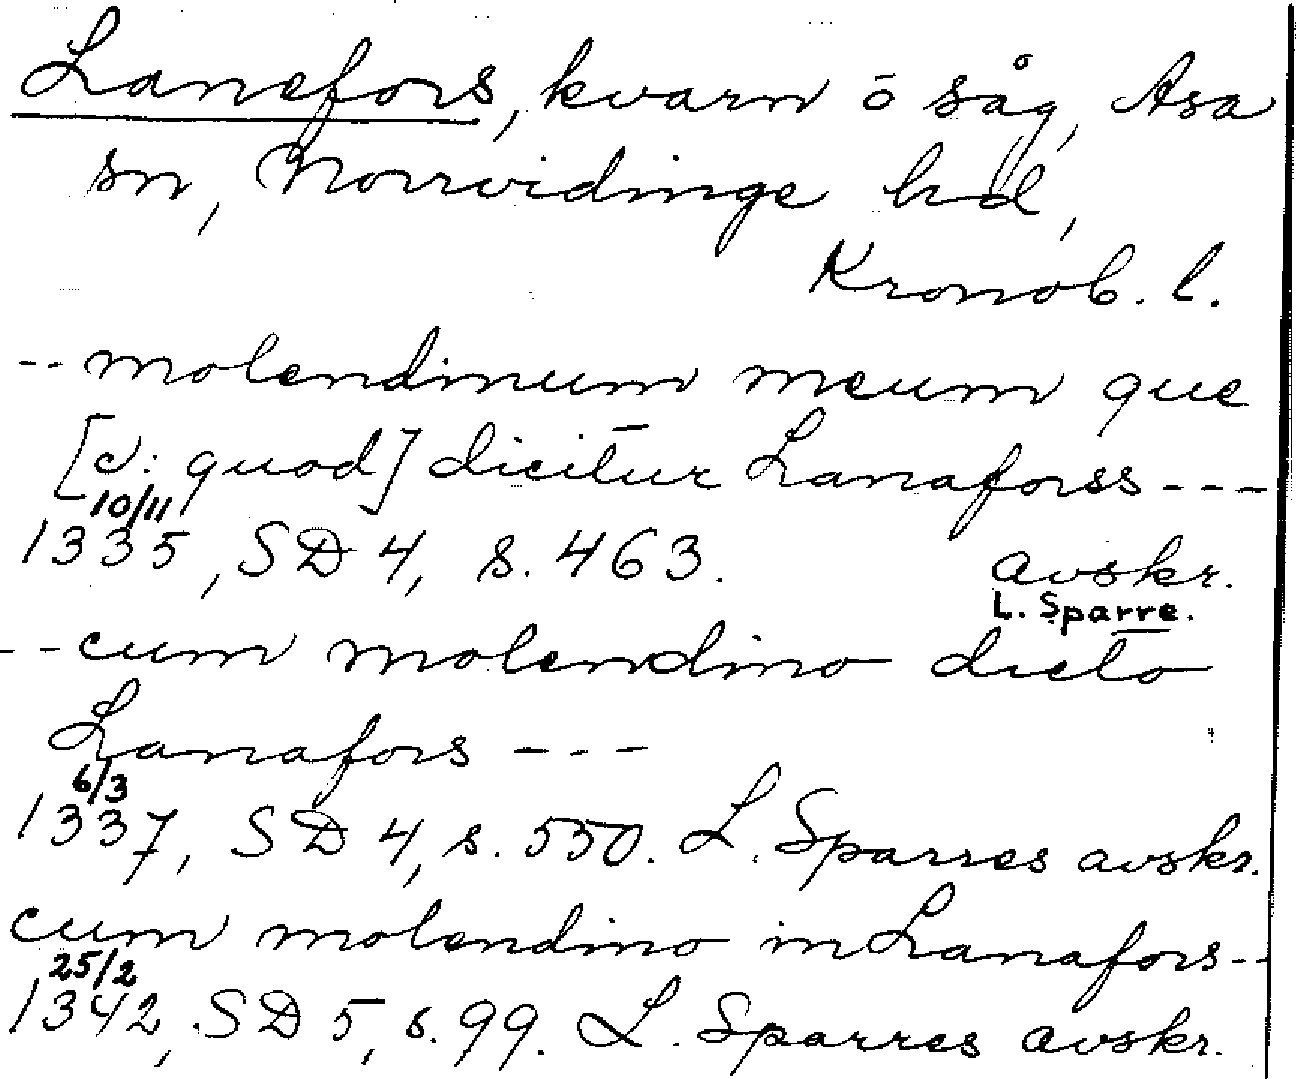 Lanefors, kvarn ō såg, Asa
sn, Norrvidinge hd,
Kronob. l.
-- molendinum meum que
[ɔ: quod] dicitur Lanaforss ---
10/11
1335, SD 4, s. 463. avskr.
L. Sparre.
-- cum molendino dicto
Lanafors ---
6/3
1337, SD 4, s. 550. L. Sparres avskr.
cum molendino in Lanafors --
25/2
1342, SD 5, s. 99. L. Sparres avskr.